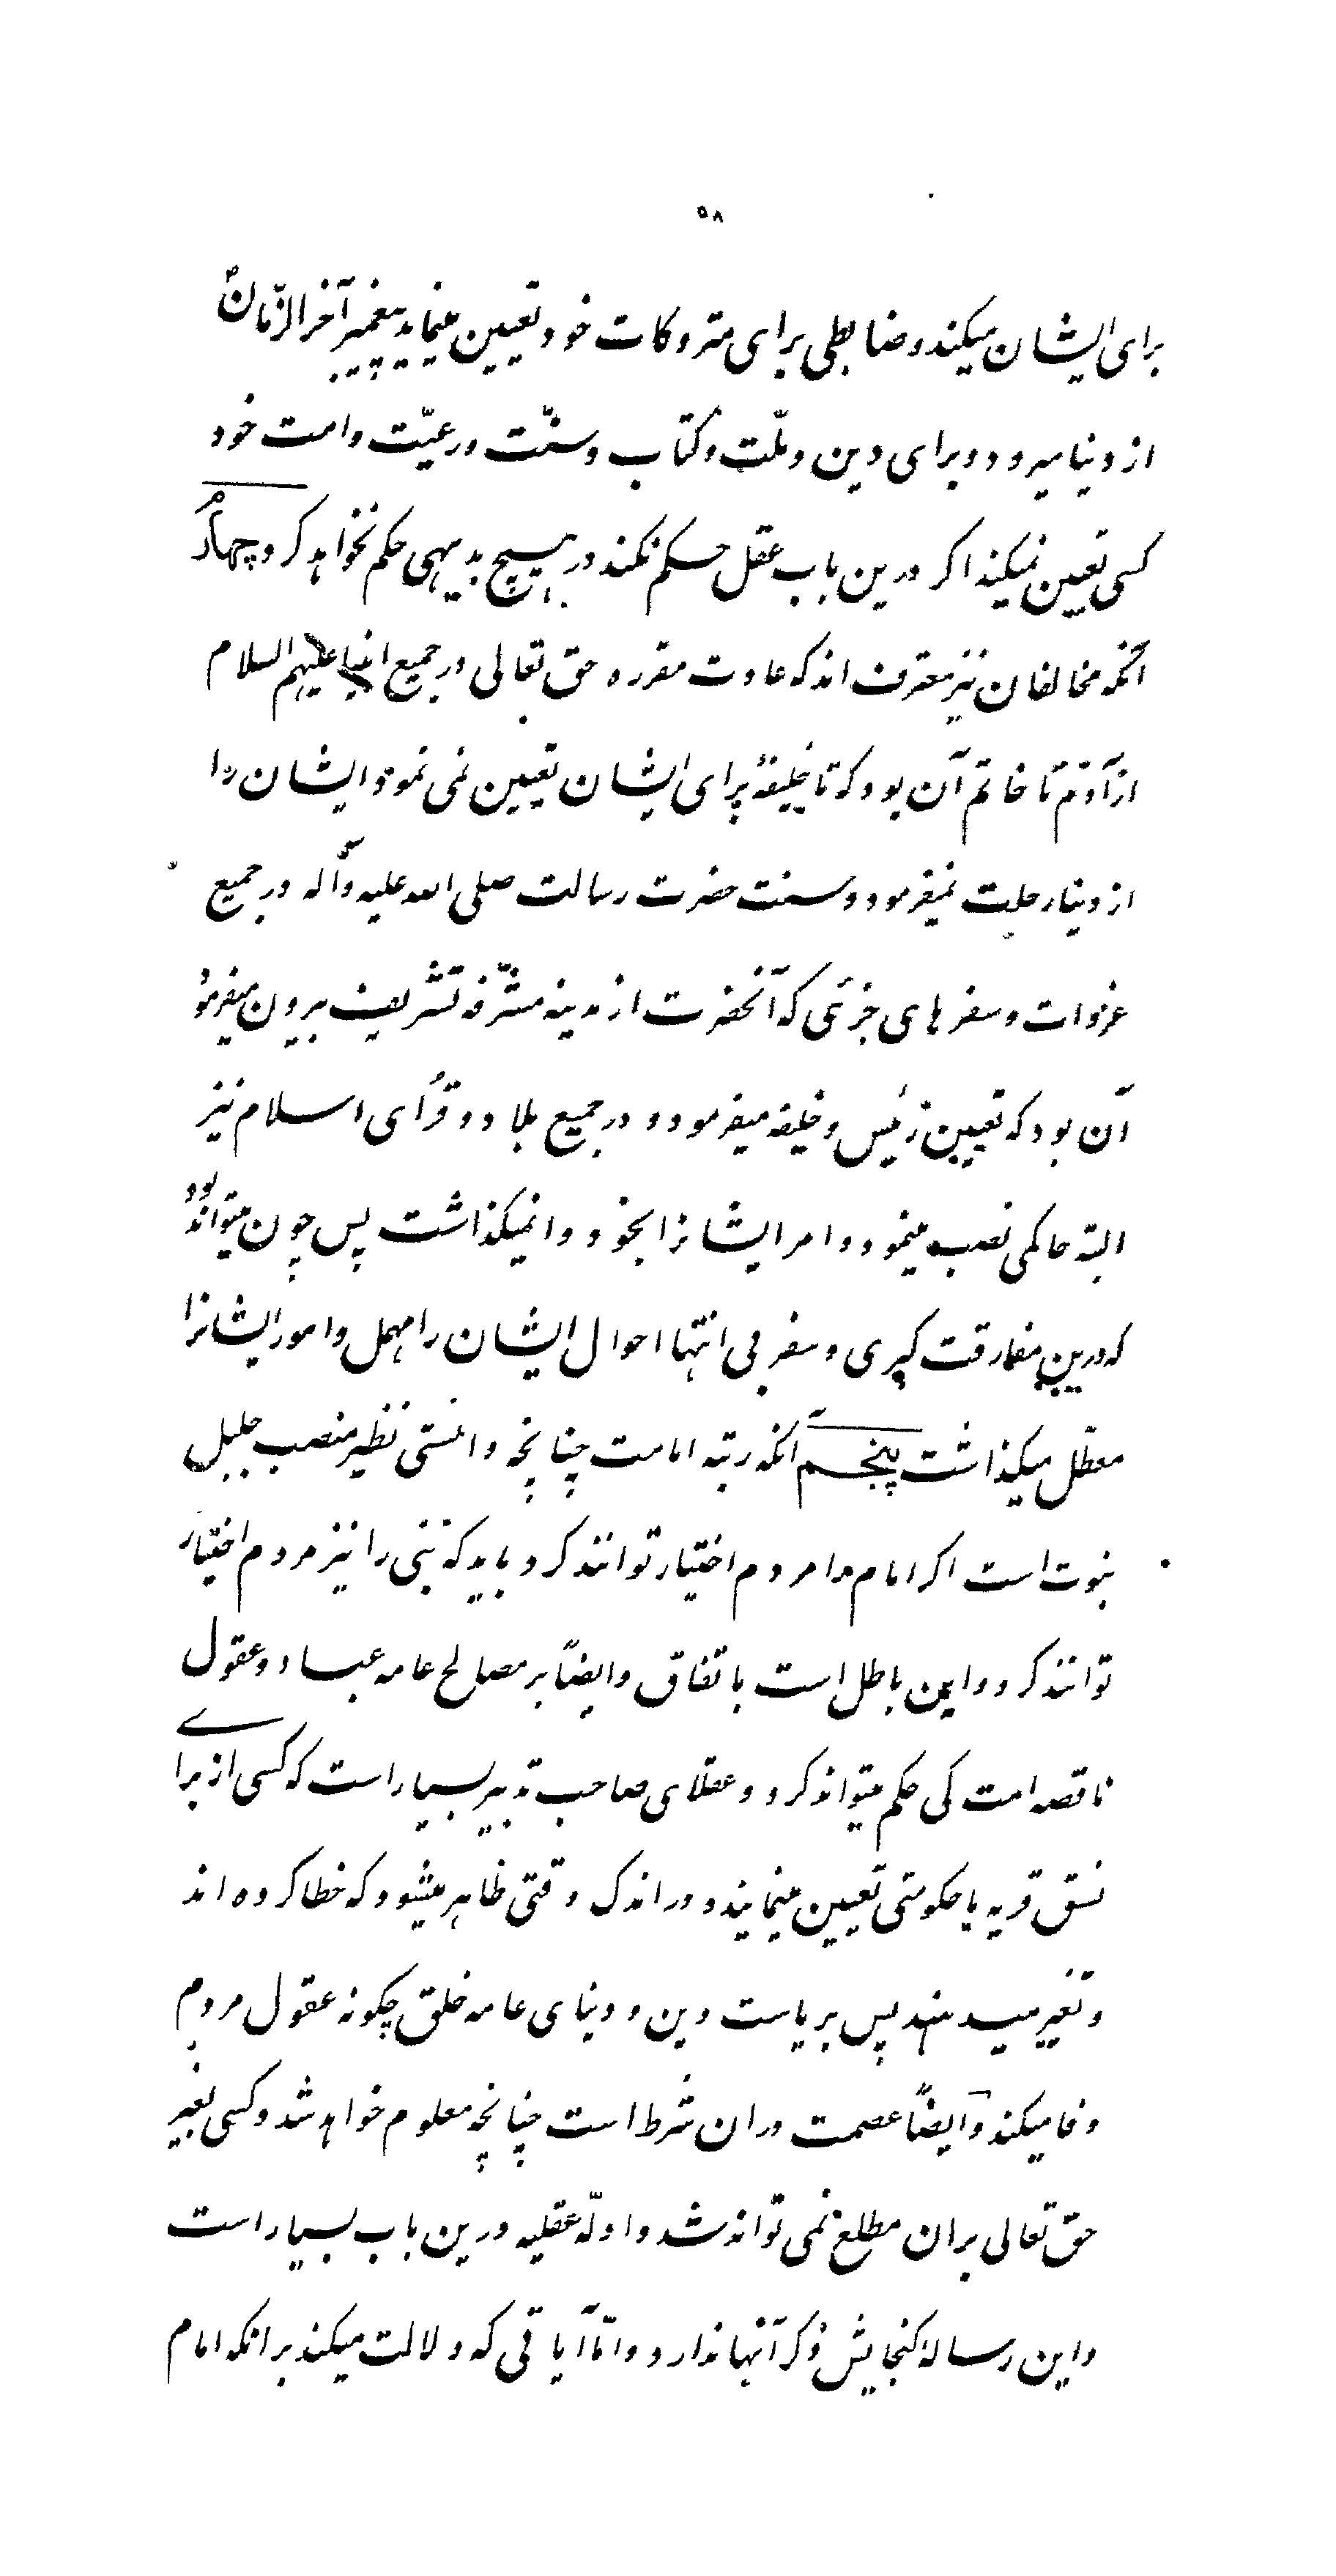 ۵۸
برای ایشان میکند و ضابطی برای متروکات خود تعیین مینماید پیغمبر آخر الزّمان ص
از دنیا میرود و برای دین و ملّت و کتاب و سنّت و رعیّت و امت خود
کسی تعیین نمیکند اگر درین باب عقل حکم نکند در هیچ بدیهی حکم نخواهد کرد چهارم
آنکه مخالفان نیز معترف اند که عادت مقرره حق تعالی در جمیع انبیا علیهم السلام
از آدم تا خاتم آن بود که تا خلیفهٔ برای ایشان تعیین نمی نمود ایشان را
از دنیا رحلت نمیفرمود و سنت حضرت رسالت صلی الله علیه وآله در جمیع
غزوات و سفرهای جزئی که آنحضرت از مدینه مشرّفه تشریف بیرون میفرمود
آن بود که تعیین رئیس و خلیفه میفرمود و در جمیع بلاد و قرای اسلام نیز
البته حاکمی نصب مینمود و امر ایشانرا بخود وا نمیگذاشت پس چون میتواند بود
که درین مفارقت کبری و سفر بی انتها احوال ایشان را مهمل و امور ایشانرا
معطّل میگذاشت پنجم آنکه رتبه امامت چنانچه دانستی نظیر منصب جلیل
نبوت است اگر امام را مردم اختیار توانند کرد باید که نبی را نیز مردم اختیار
توانند کرد و این باطل است باتفاق و ایضاً بر مصالح عامه عباد و عقول
ناقصه امت کی حکم میتواند کرد و عقلای صاحب تدبیر بسیار است که کسی از برای
نسق قریه یا حکومتی تعیین مینمایند و در اندک وقتی ظاهر میشود که خطا کرده اند
و تغیر میدهند پس بریاست دین و دنیای عامه خلق چگونه عقول مردم
وفا میکند و ایضاً عصمت در ان شرط است چنانچه معلوم خواهد شد و کسی بغیر
حق تعالی بر ان مطلع نمی تواند شد و ادلّه عقلیه درین باب بسیار است
و این رساله گنجایش ذکر آنها ندارد و امّا آیاتی که دلالت میکند بر انکه امام